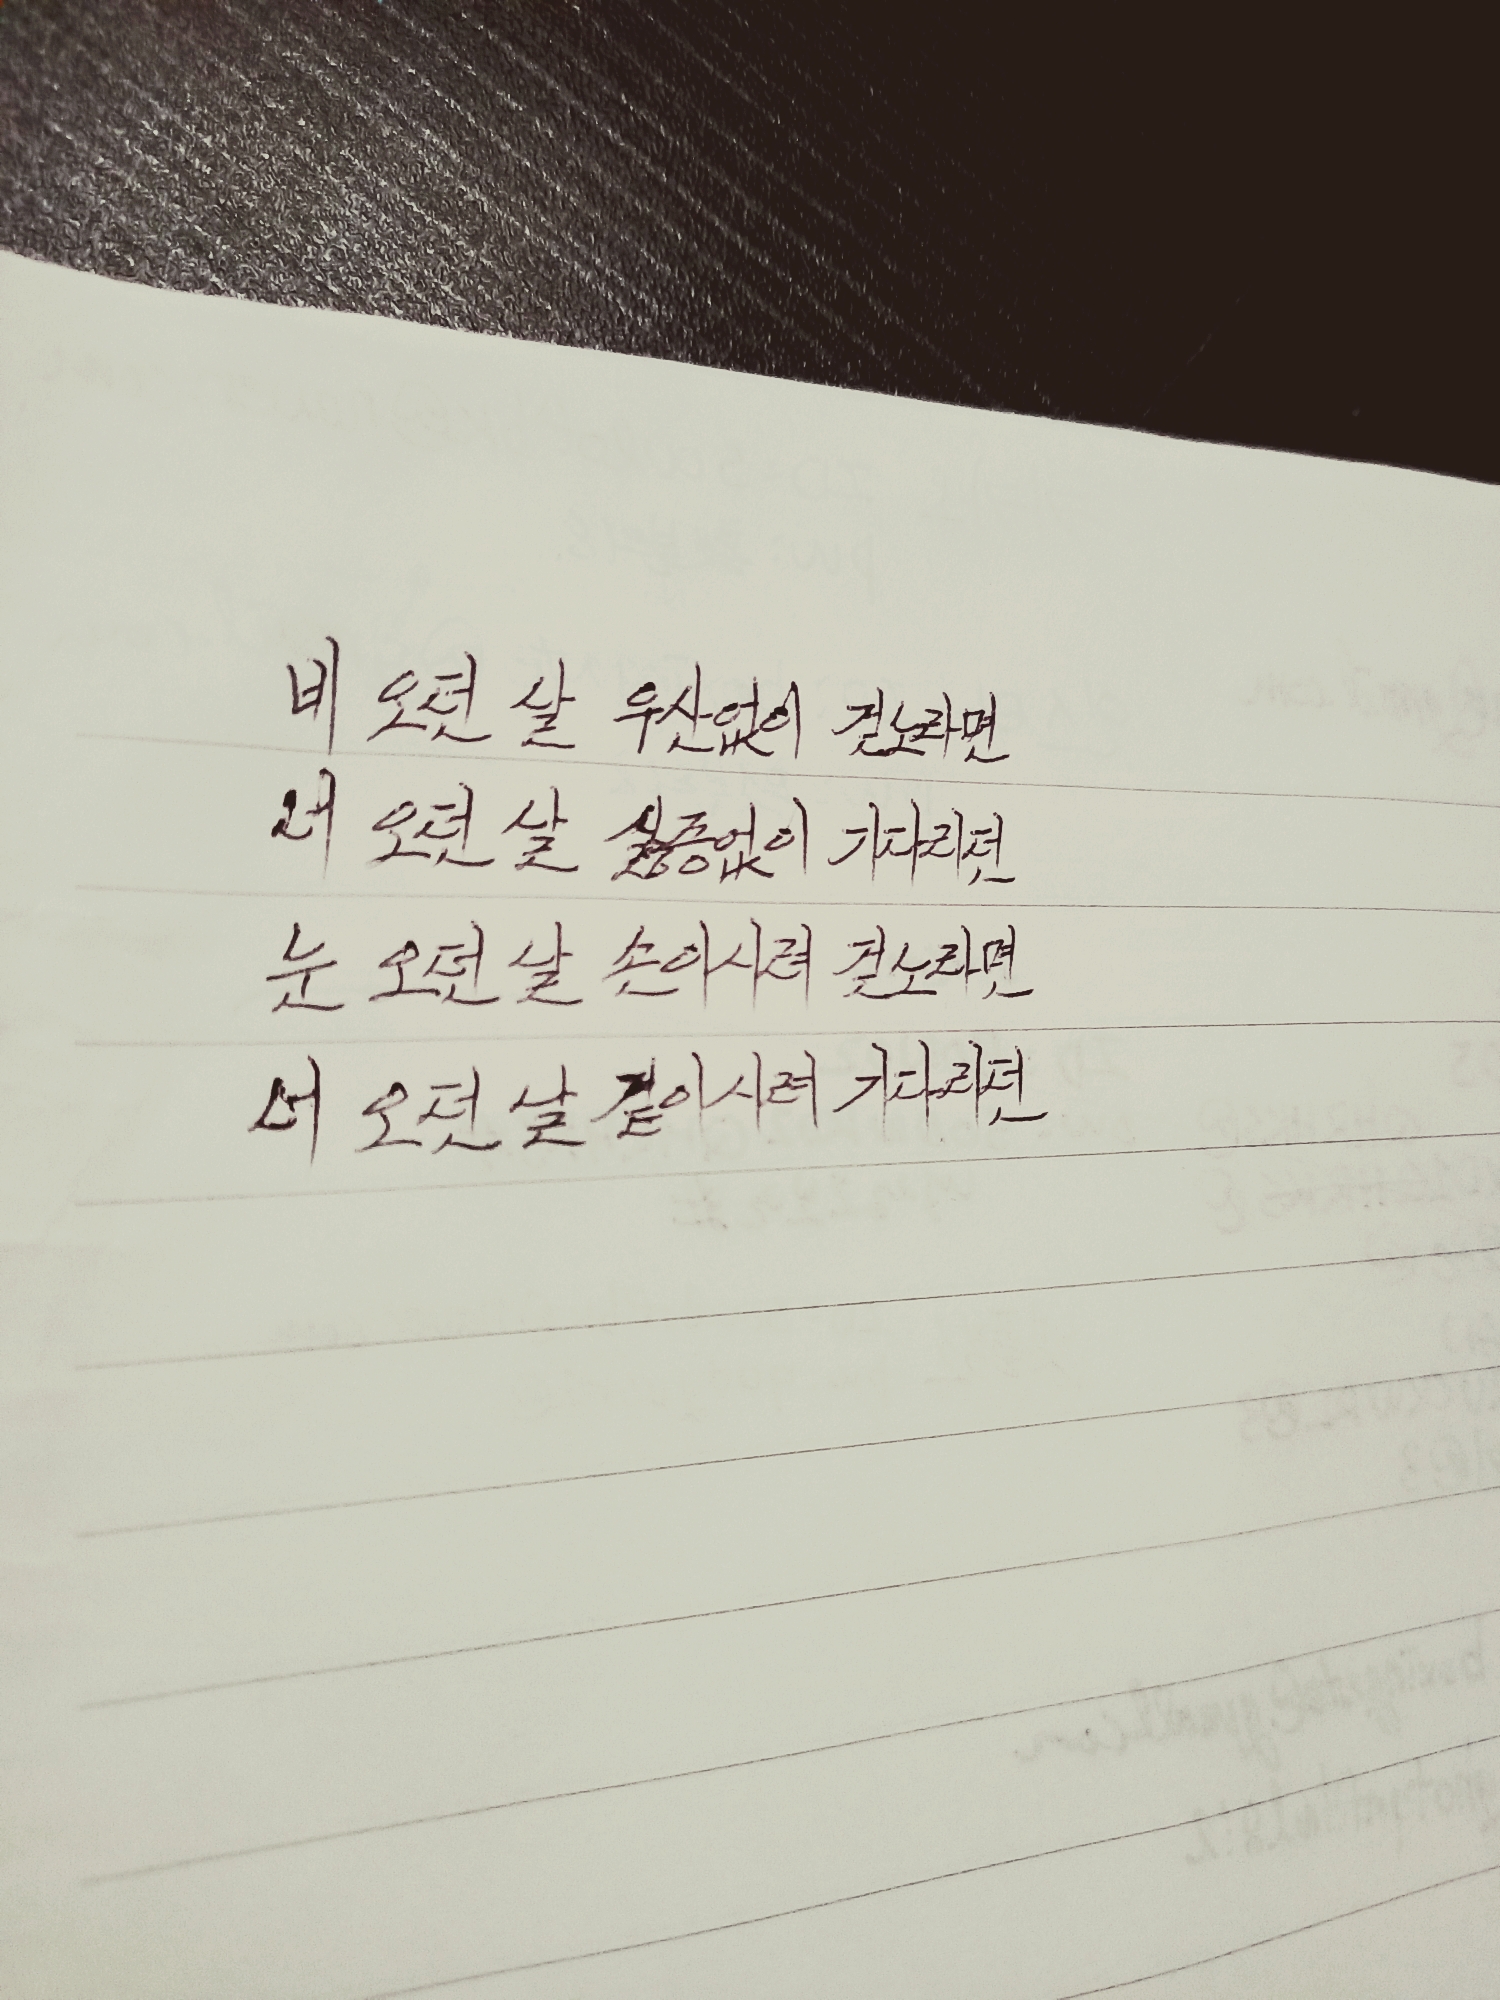 비 오던 날 우산없이 걷노라면
너 오던 날 싫증없이 기다리던
눈 오던 날 손이시려 걷노라면
너 오던 날 곁이시려 기다리던